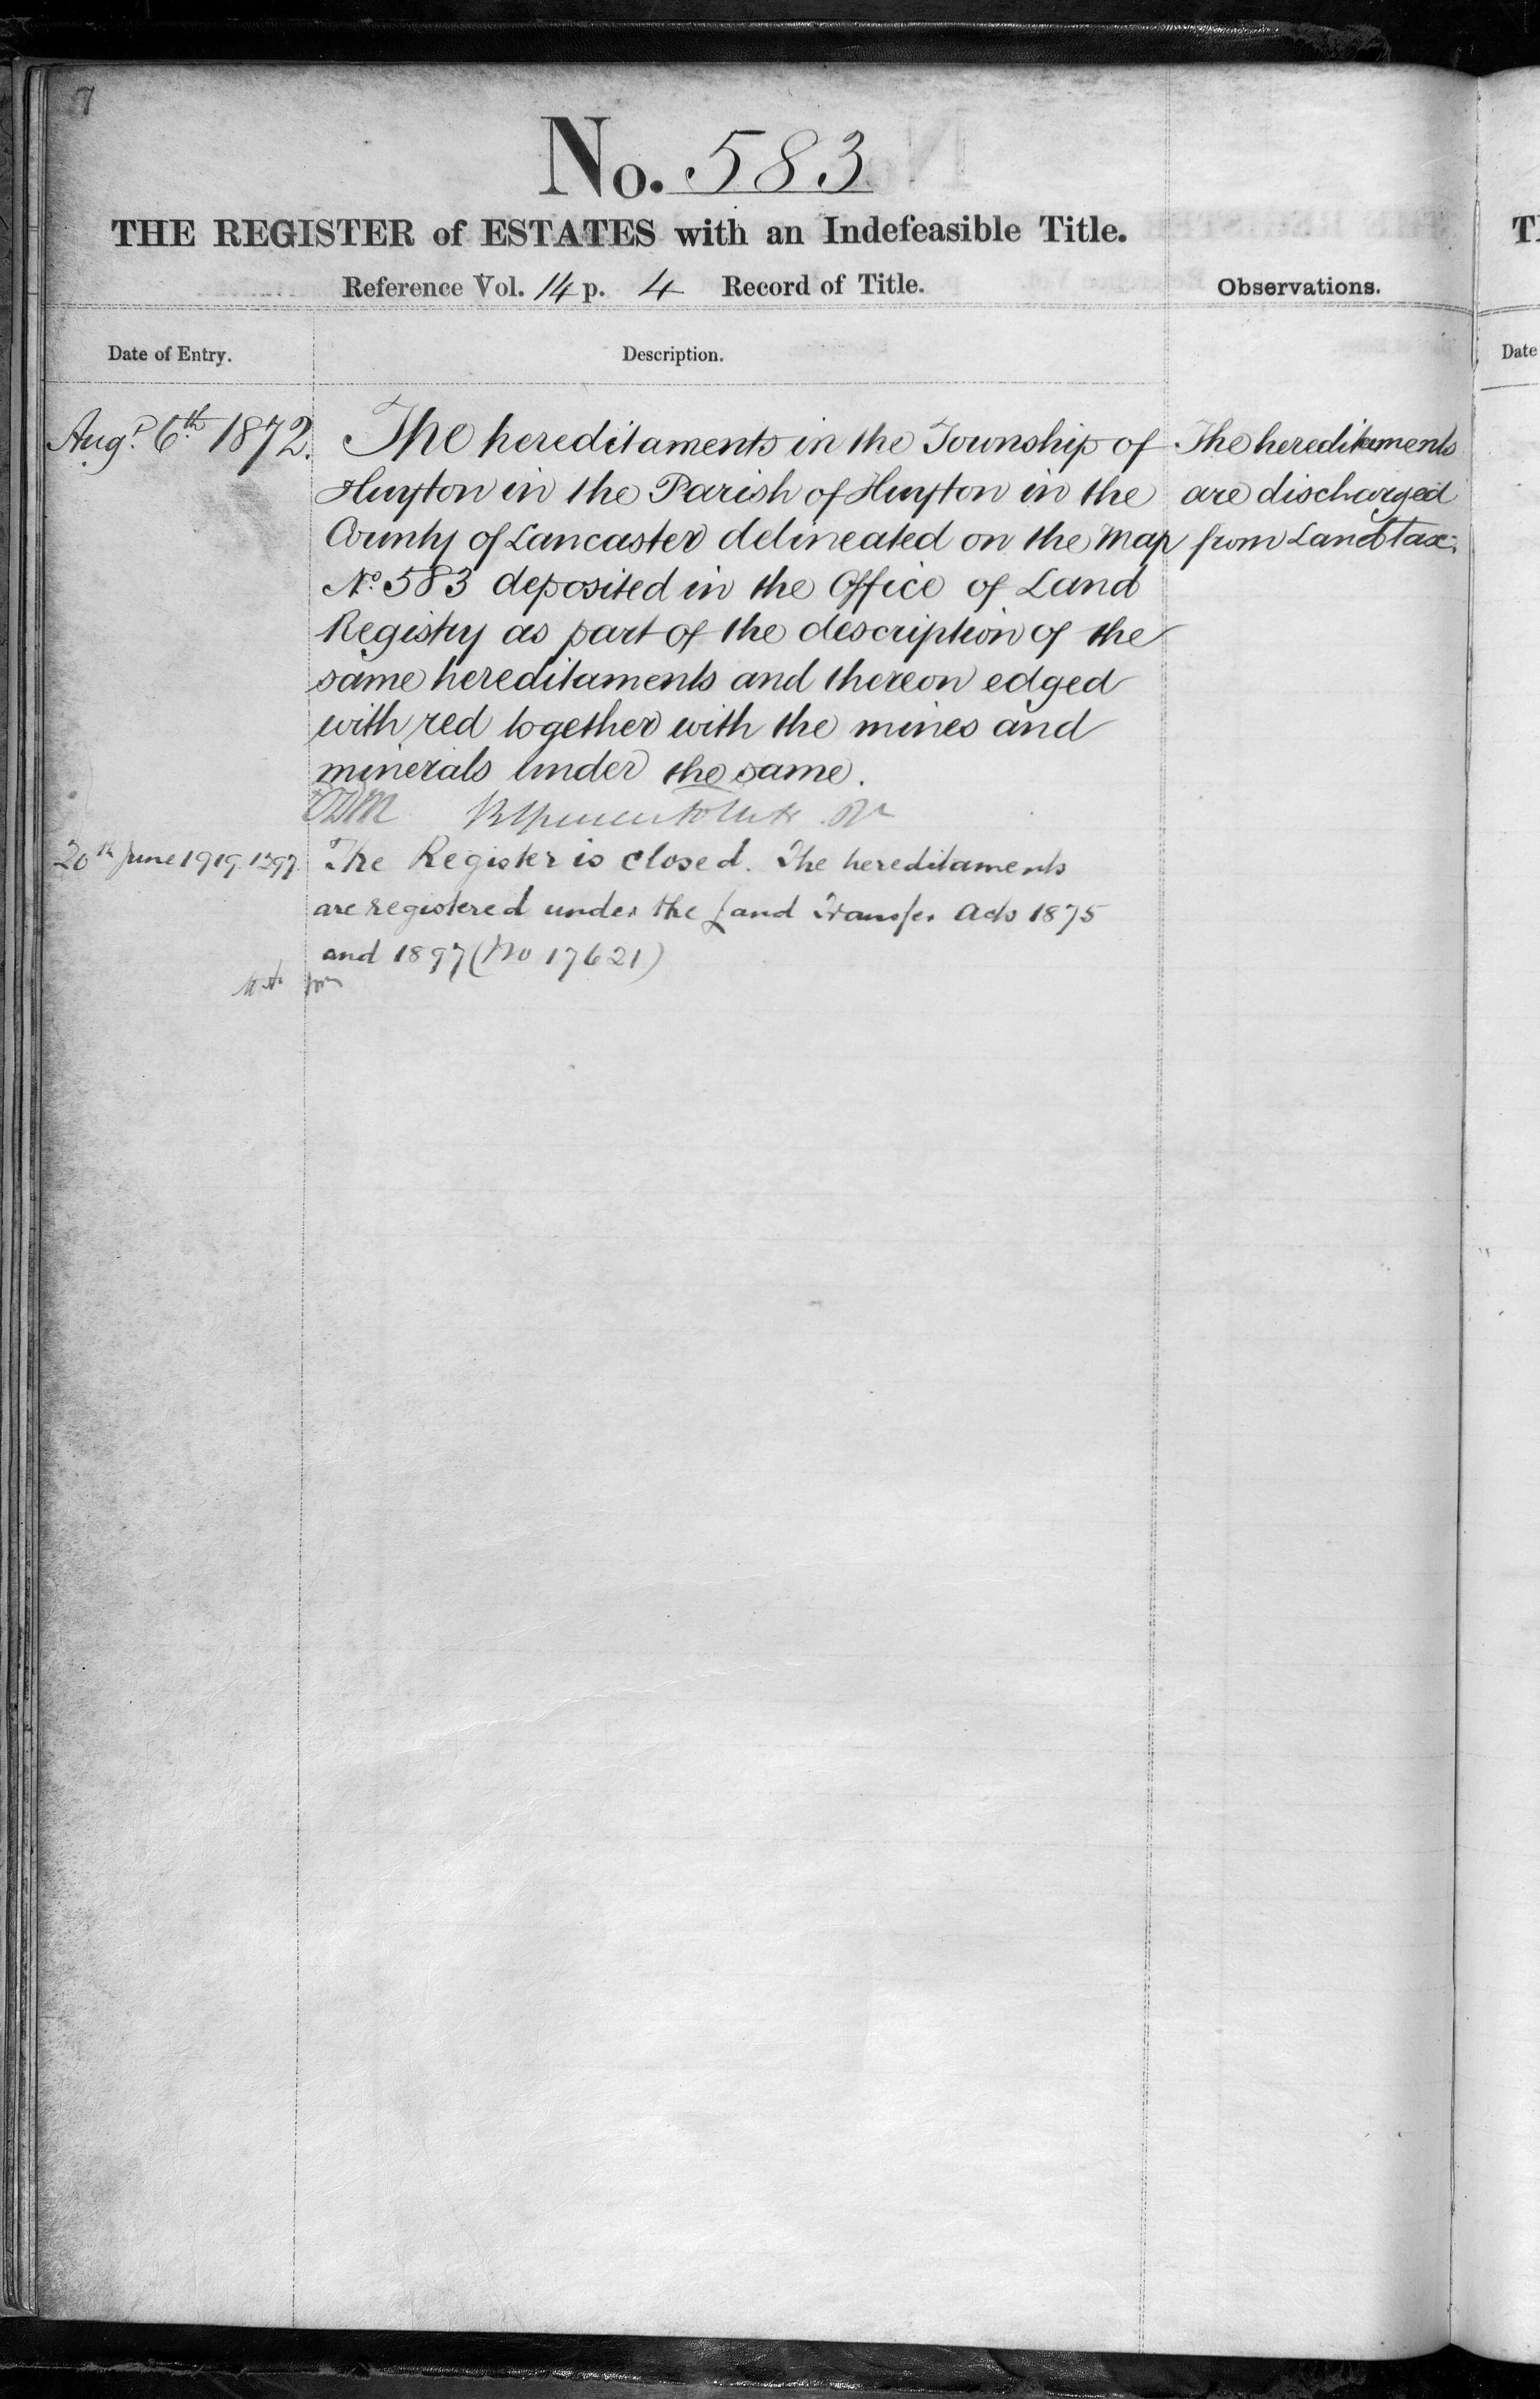 7
No. 583
THE REGISTER of ESTATES with an Indefeasible Title.
Reference Vol. 14 p. 4 Record of Title.
Observations.
Date of Entry.
Description.
Augt. 6th 1872.
The hereditaments in the Township of
Huyton in the Parish of Huyton in the
County of Lancaster delineated on the Map
No. 583 deposited in the Office of Land
Registry as part of the description of the
same hereditaments and thereon edged
with red together with the mines and
minerals under the same.
The hereditaments
are discharged
from Land tax.
20th June 1919
The Register is closed. The hereditaments
are registered under the Land Transfer Acts 1875
and 1897 (No 17621)
T
Date